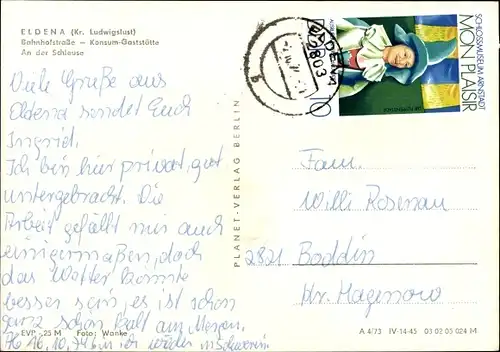 ELDENA (Kr. Ludwigslust)
Bahnhofstraße — Konsum-Gaststätte
An der Schleuse
Viele Grüße aus
Eldena sendet Euch
Ingrid.
Ich bin hier privat gut
untergebracht. Die
Arbeit gefällt mir auch
einigermaßen, doch
das Wetter könnte
besser sein, es ist schon
ganz schön kalt am Morgen.
Ab 16.10.74 bin ich wieder in Schwerin.
EVP -,25 M Foto: Wanke
PLANET-VERLAG BERLIN
ELDENA
2803
10
SCHLOSSMUSEUM ARNSTADT
MON PLAISIR
Fam.
Willi Rosenau
2821 Boddin
Kr. Hagenow
A 4/73 IV-14-45 03 02 05 024 M